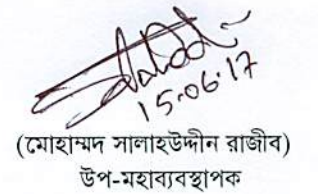 15.06.17
(মোহাম্মদ সালাহউদ্দীন রাজীব)
উপ-মহাব্যবস্থাপক